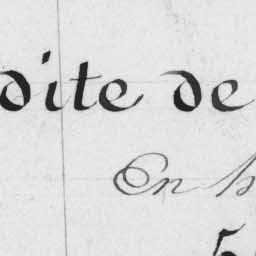 dite de
En h